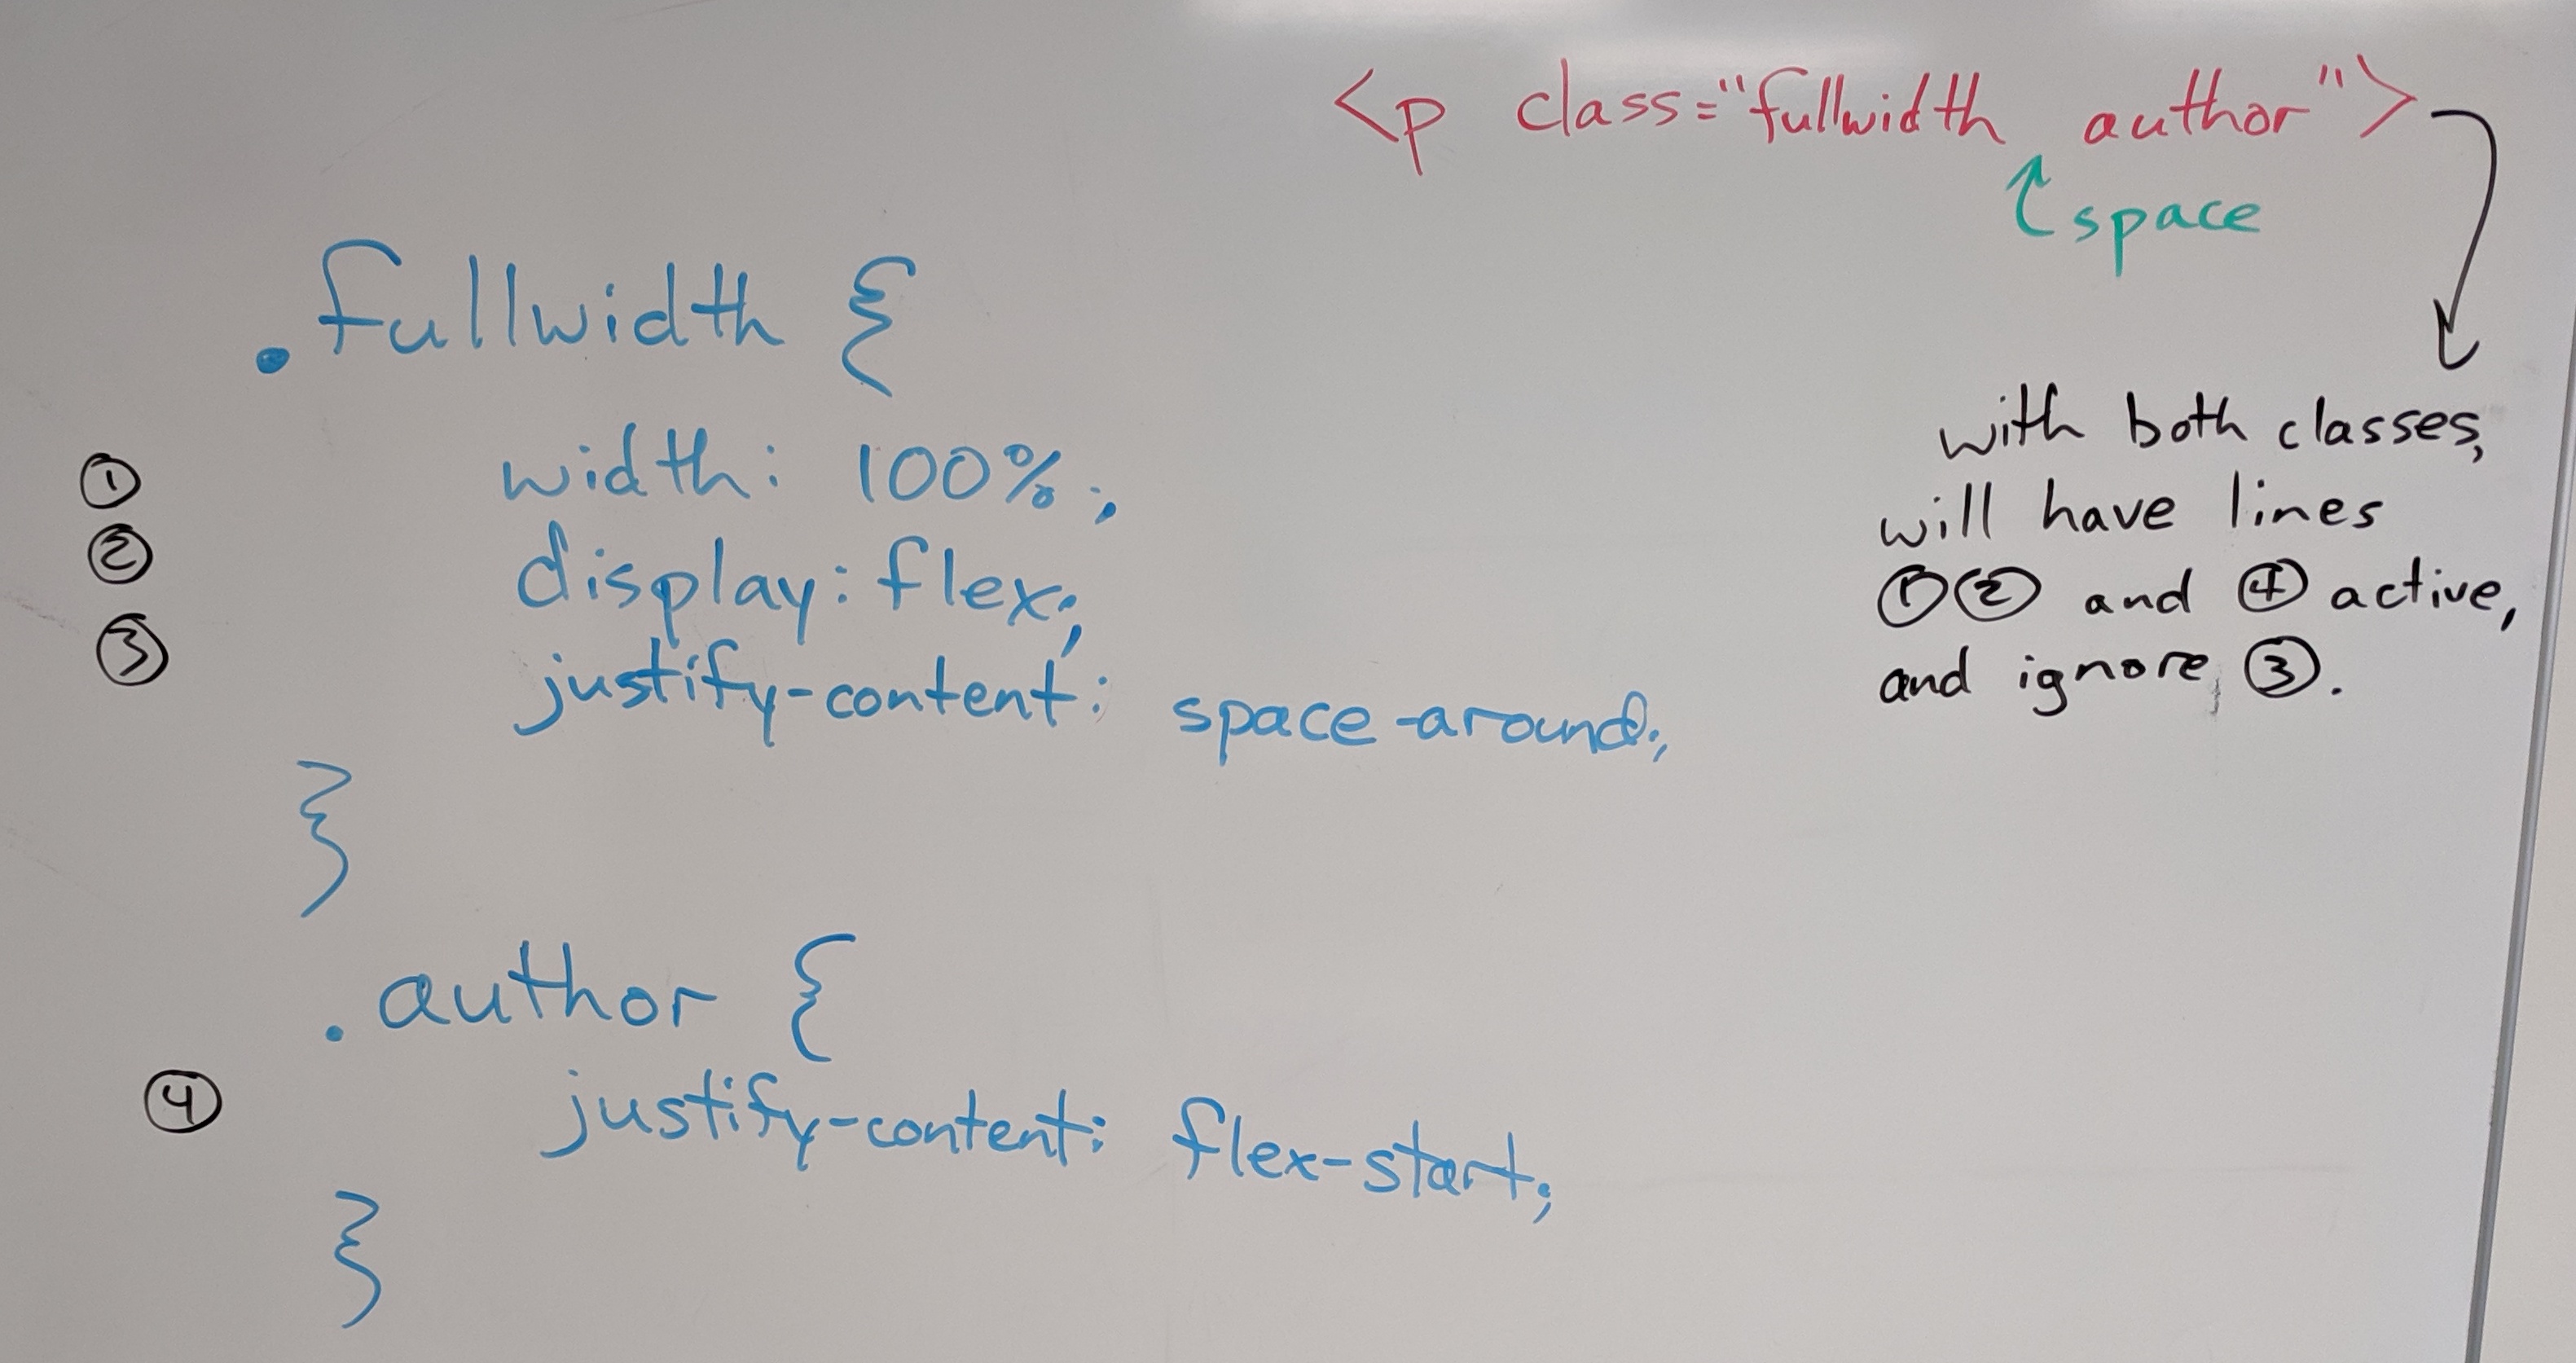 <p class="fullwidth author">
space
.fullwidth {
① width: 100%;
② display: flex;
③ justify-content: space-around;
}
.author {
④ justify-content: flex-start;
}
with both classes,
will have lines
①② and ④ active,
and ignore ③.